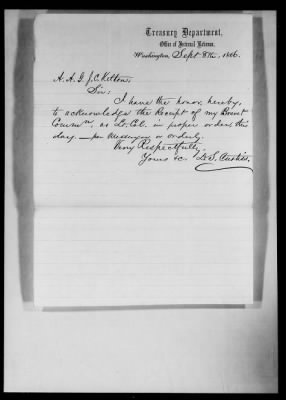 Treasury Department,
Office of Internal Revenue,
Washington, Sept 8th, 1866.
A. A. G. J. C. Kelton
Sir:
I have the honor, hereby,
to acknowledge the Receipt of my Brevet
Commn, as Lt. Col. in proper order, this
day — per Messenger or orderly.
Very Respectfully,
Yours &c